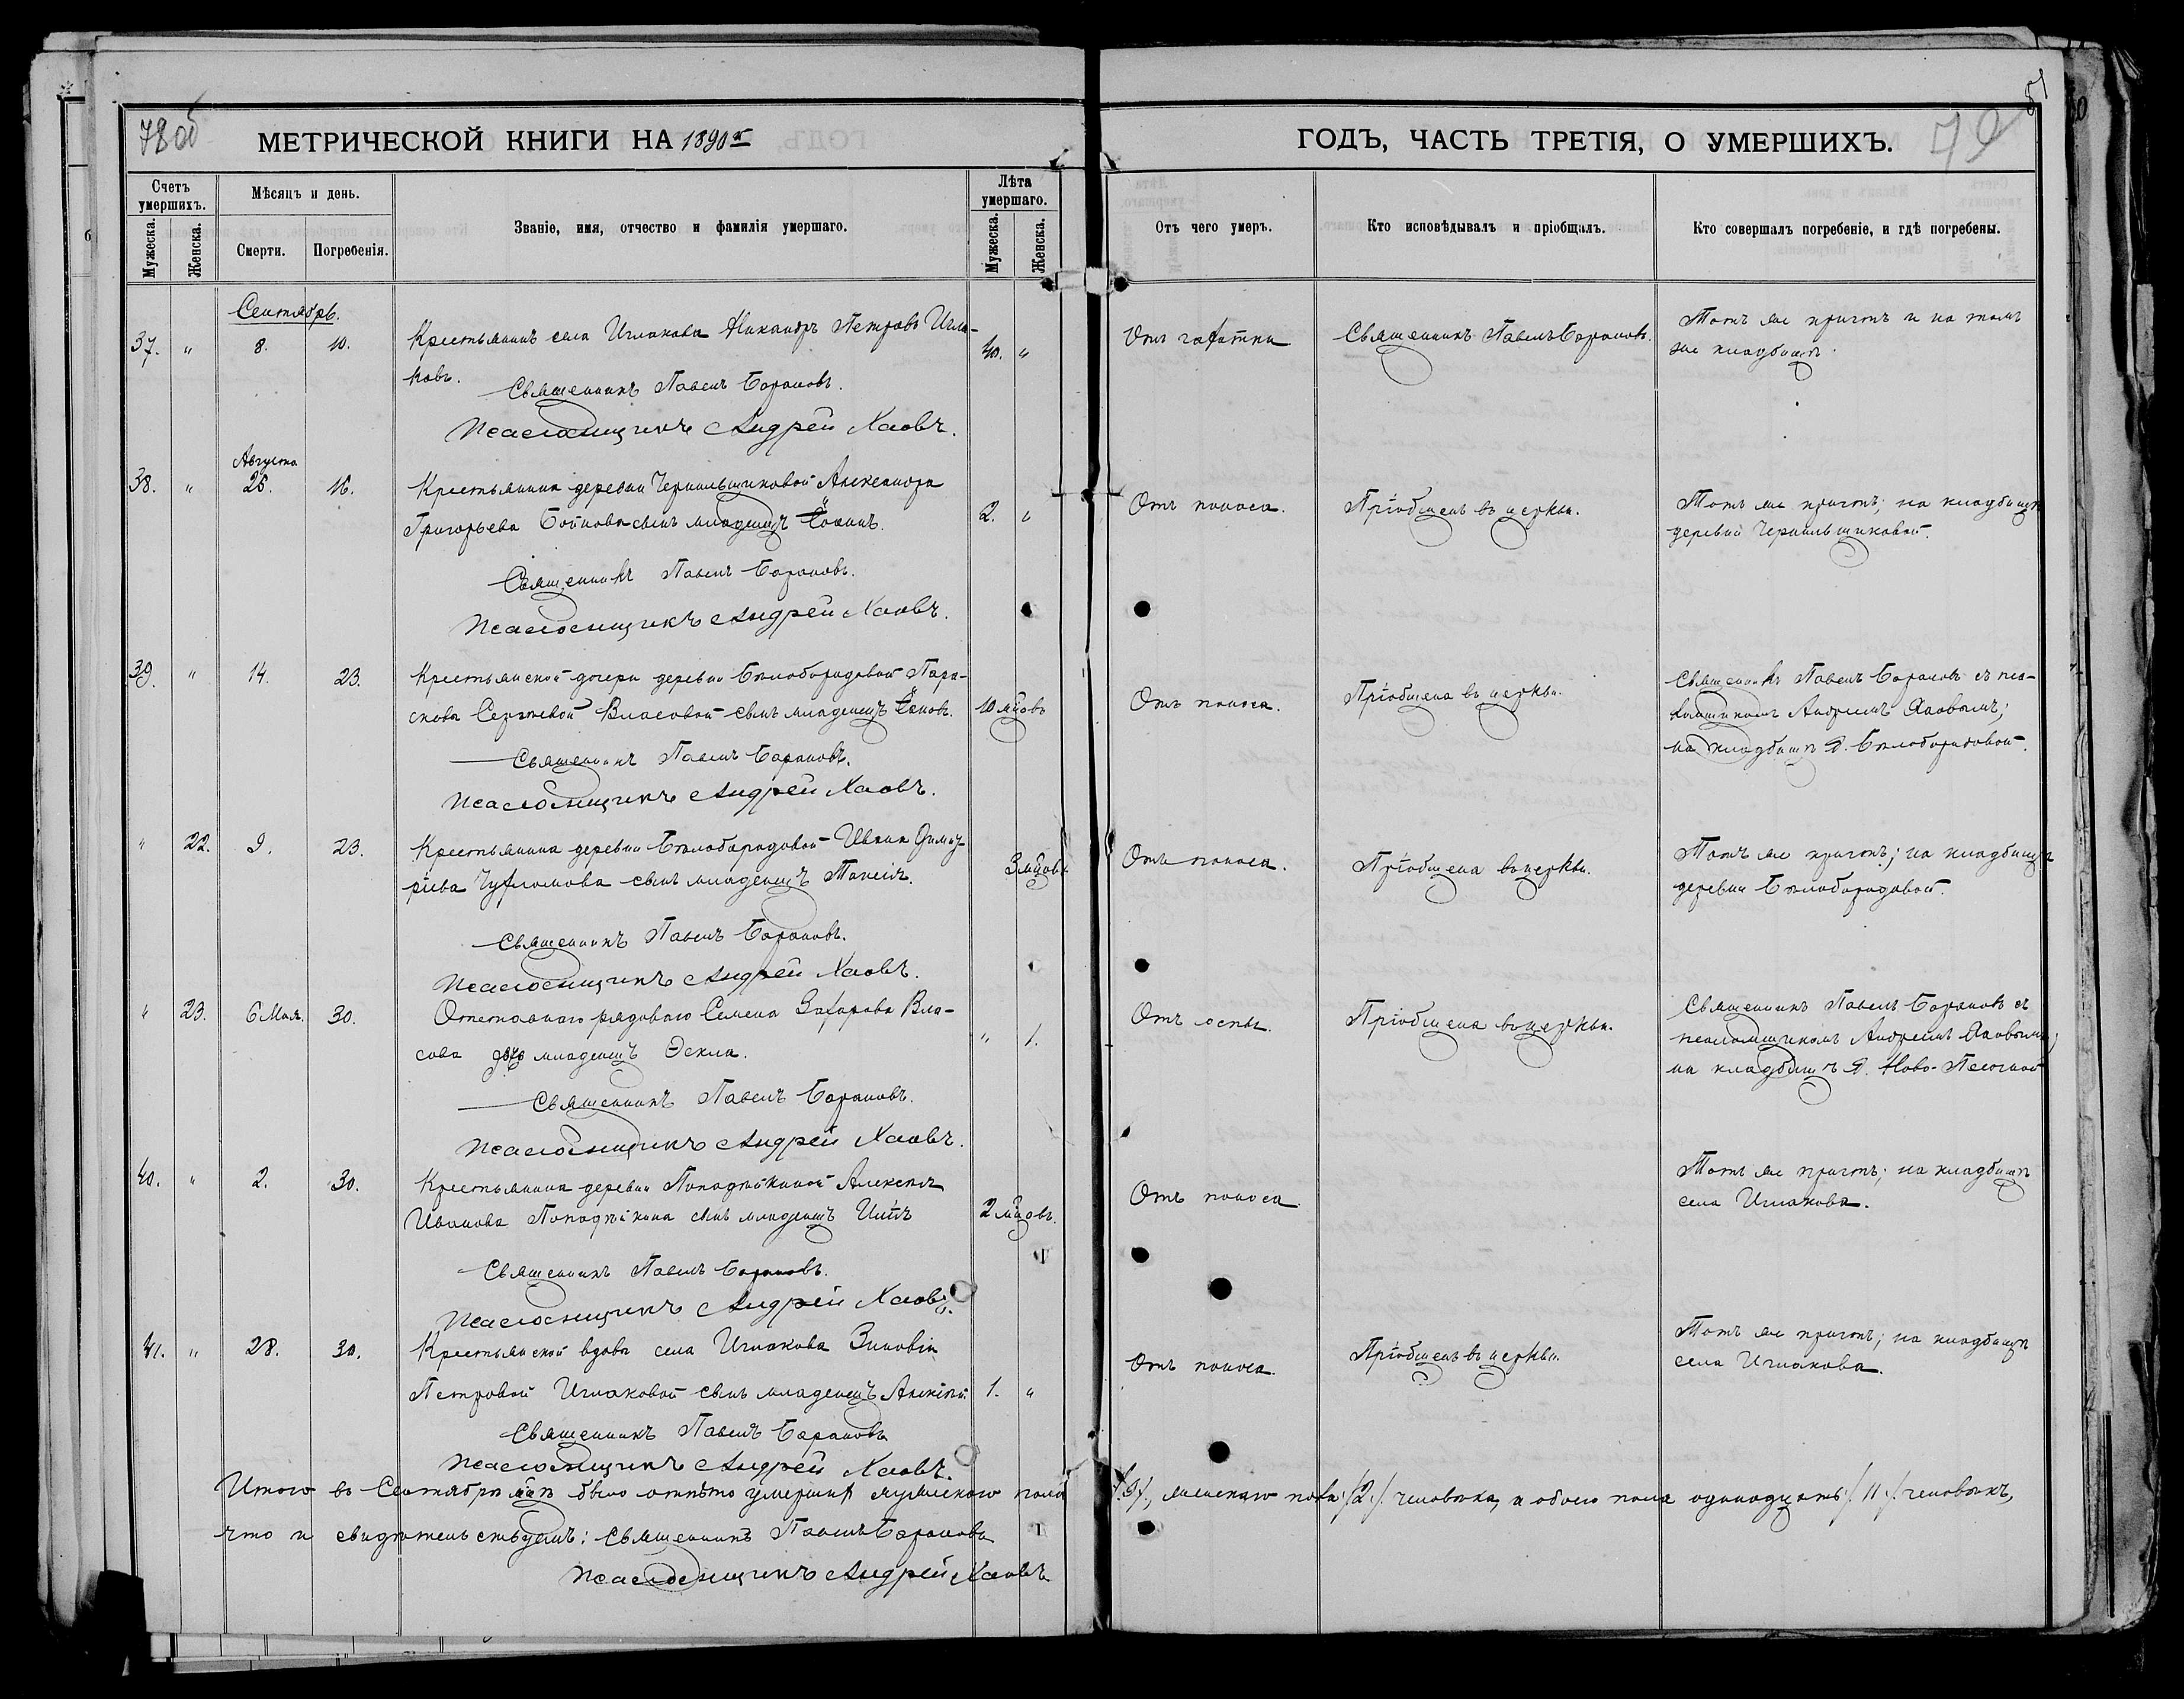 78 об
МЕТРИЧЕСКОЙ КНИГИ НА 1890й
Счетъ умершихъ.
Мужеска.
Женска.
Мѣсяцъ и день.
Смерти.
Погребенія.
Званіе, имя, отчество и фамилія умершаго.
Лѣта умершаго.
Мужеска.
Женска.
51
79
ГОДЪ, ЧАСТЬ ТРЕТІЯ, О УМЕРШИХЪ.
Отъ чего умеръ.
Кто исповѣдывалъ и пріобщалъ.
Кто совершалъ погребеніе, и гдѣ погребены.
Сентябрь.
37. " 8. 10. Крестьянинъ села Иглакова Никандръ Петровъ Игла-
ковъ. 40. "
Священникъ Павелъ Барановъ.
Псаломщикъ Андрей Хаовъ.
Отъ чахотки
Священникъ Павелъ Барановъ.
Тотъ же причтъ и на томъ
же кладбищѣ.
Августа
38. " 25. 16. Крестьянина деревни Чернильщиковой Александра
Григорьева сынъ младенецъ 2. "
Священникъ Павелъ Барановъ.
Псаломщикъ Андрей Хаовъ.
Отъ поноса.
Пріобщенъ въ церкви.
Тотъ же причтъ; на кладбищѣ
деревни Чернильщиковой.
39. " 14. 23. Крестьянской дочери деревни Бѣлобородовой Пара-
скевы Сергѣевой Власовой сынъ младенецъ 10 мцовъ
Священникъ Павелъ Барановъ.
Псаломщикъ Андрей Хаовъ.
Отъ поноса.
Пріобщена въ церкви.
Священникъ Павелъ Барановъ съ пса-
ломщикомъ Андреемъ Хаовымъ;
на кладбищѣ д. Бѣлобородовой.
" 22. 9. 23. Крестьянина деревни Бѣлобородовой Ивана Димит-
ріева Чухломова сынъ младенецъ 3 мцовъ
Священникъ Павелъ Барановъ.
Псаломщикъ Андрей Хаовъ.
Отъ поноса.
Пріобщена въ церкви.
Тотъ же причтъ; на кладбищѣ
деревни Бѣлобородовой.
" 23. 6 Мая. 30. Отставнаго рядоваго Семена Захарова Вла-
сова дочь младенецъ Ѳекла. " 1.
Священникъ Павелъ Барановъ.
Псаломщикъ Андрей Хаовъ.
Отъ оспы.
Пріобщена въ церкви.
Священникъ Павелъ Барановъ съ
псаломщикомъ Андреемъ Хаовымъ;
на кладбищѣ д. Ново-Песочной
40. " 2. 30. Крестьянина деревни Попадѣйкиной Алексѣя
Иванова Попадѣйкина сынъ младенецъ 2 мцовъ.
Священникъ Павелъ Барановъ.
Псаломщикъ Андрей Хаовъ.
Отъ поноса
Тотъ же причтъ; на кладбищѣ
села Иглакова.
41. " 28. 30. Крестьянской вдовы села Иглакова Зиновіи
Петровой Иглаковой сынъ младенецъ Алексѣй 1. "
Священникъ Павелъ Барановъ
Псаломщикъ Андрей Хаовъ.
Отъ поноса.
Пріобщенъ въ церкви.
Тотъ же причтъ; на кладбищѣ
села Иглакова.
Итого въ Сентябрѣ мцѣ было отпѣто умершихъ мужескаго пола /.9/., женскаго пола /2./. человѣка, а обоего пола одинадцать /. 11 ./ человѣкъ,
что и свидѣтельствуемъ: Священникъ Павелъ Барановъ
Псаломщикъ Андрей Хаовъ